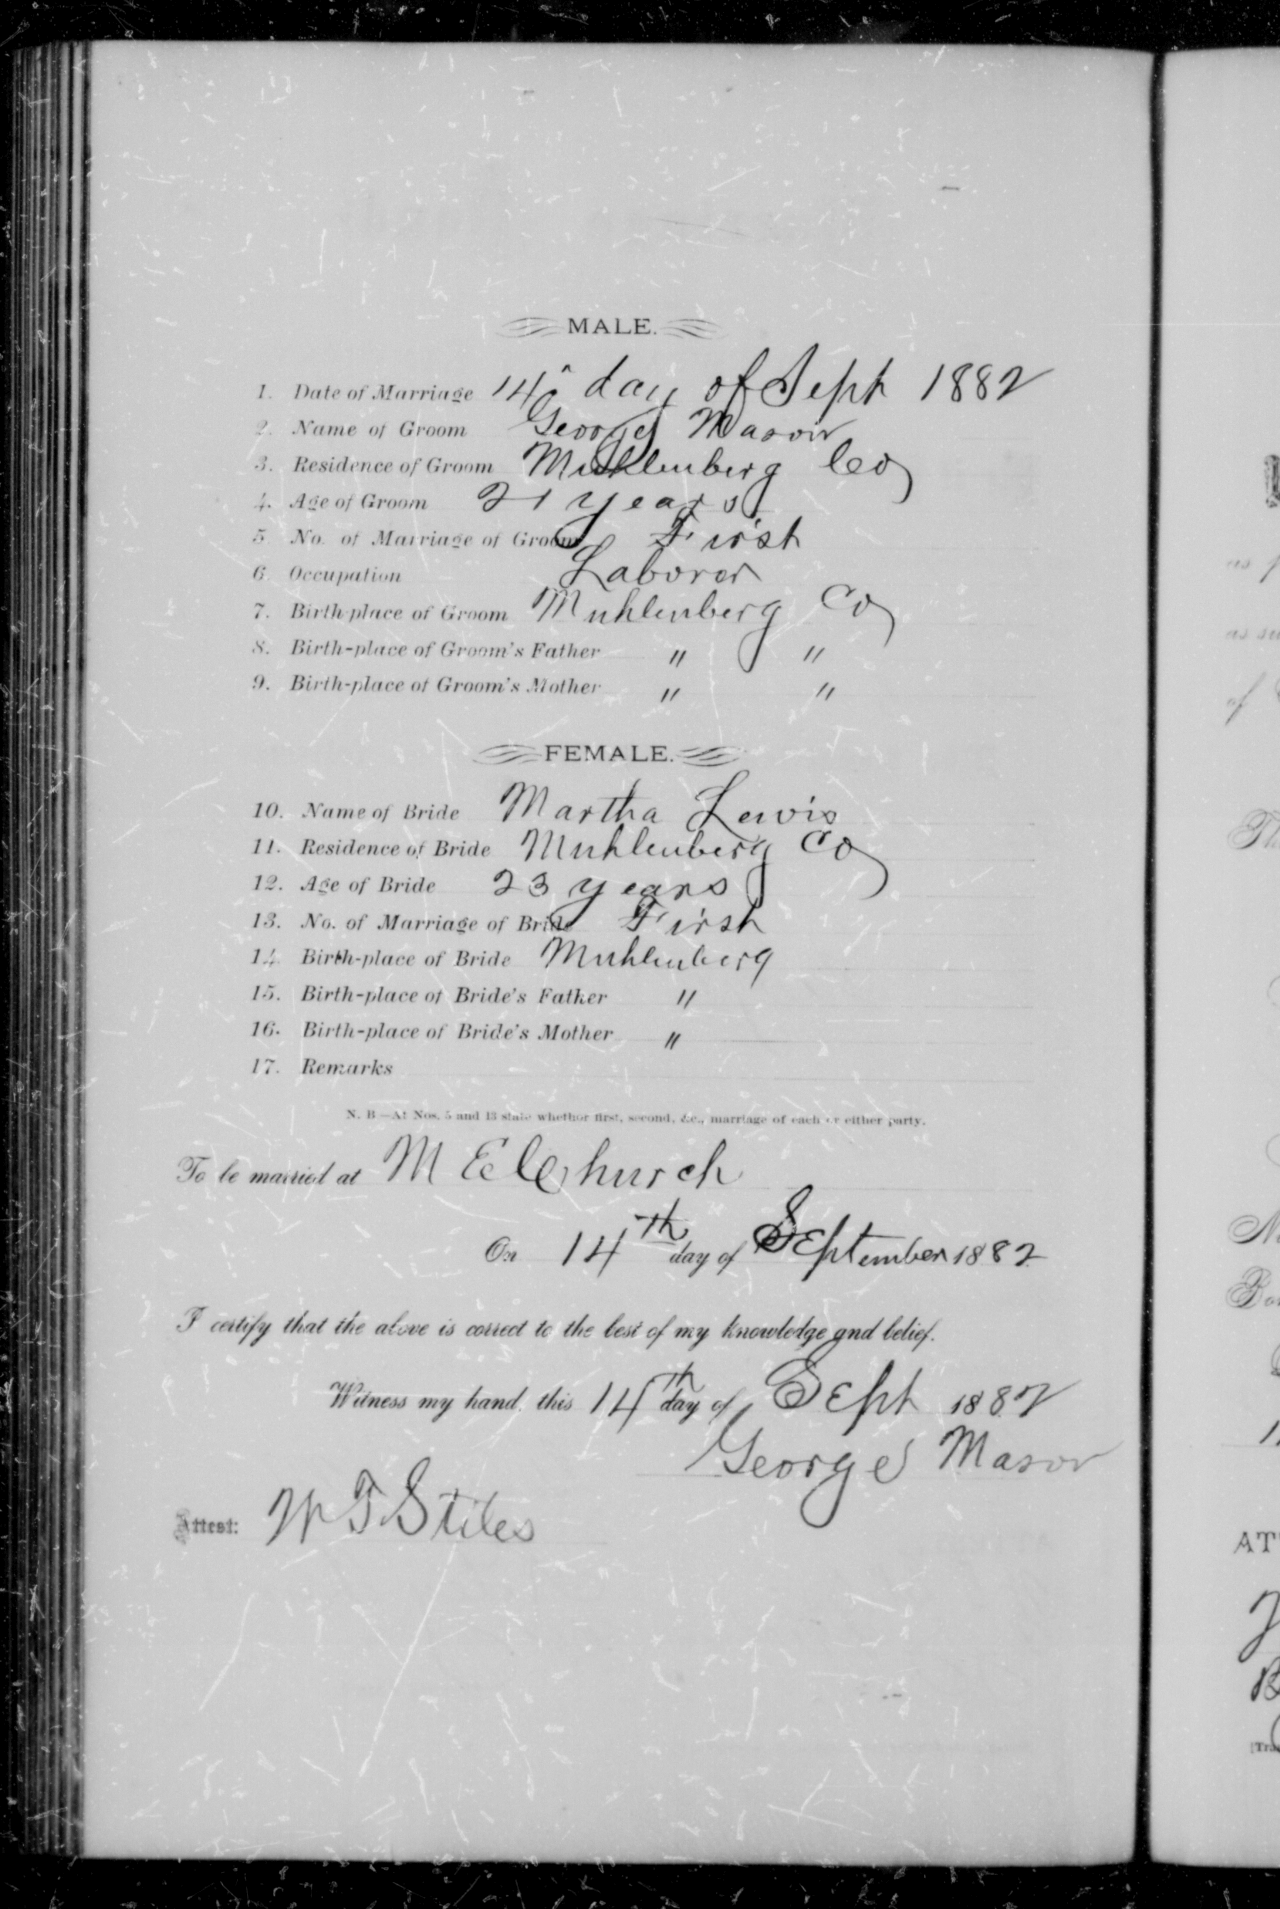 MALE.
1. Date of Marriage 14" day of Sept 1882
2. Name of Groom George Mason
3. Residence of Groom Muhlenberg Co
4. Age of Groom 21 years
5 No. of Marriage of Groom First
6. Occupation Laborer
7. Birth-place of Groom Muhlenberg Co
8. Birth-place of Groom's Father " "
9. Birth-place of Groom's Mother " "
FEMALE.
10. Name of Bride Martha Lewis
11. Residence of Bride Muhlenberg Co
12. Age of Bride 23 years
13. No. of Marriage of Bride First
14. Birth-place of Bride Muhlenberg
15. Birth-place of Bride's Father "
16. Birth-place of Bride's Mother "
17. Remarks
N. B—At Nos. 5 and 13 state whether first, second, &c., marriage of each or either party.
To be married at M E Church
On 14th day of September 1882
I certify that the above is correct to the best of my knowledge and belief.
Witness my hand, this 14th day of Sept 1882
George Mason
Attest: W T Stiles